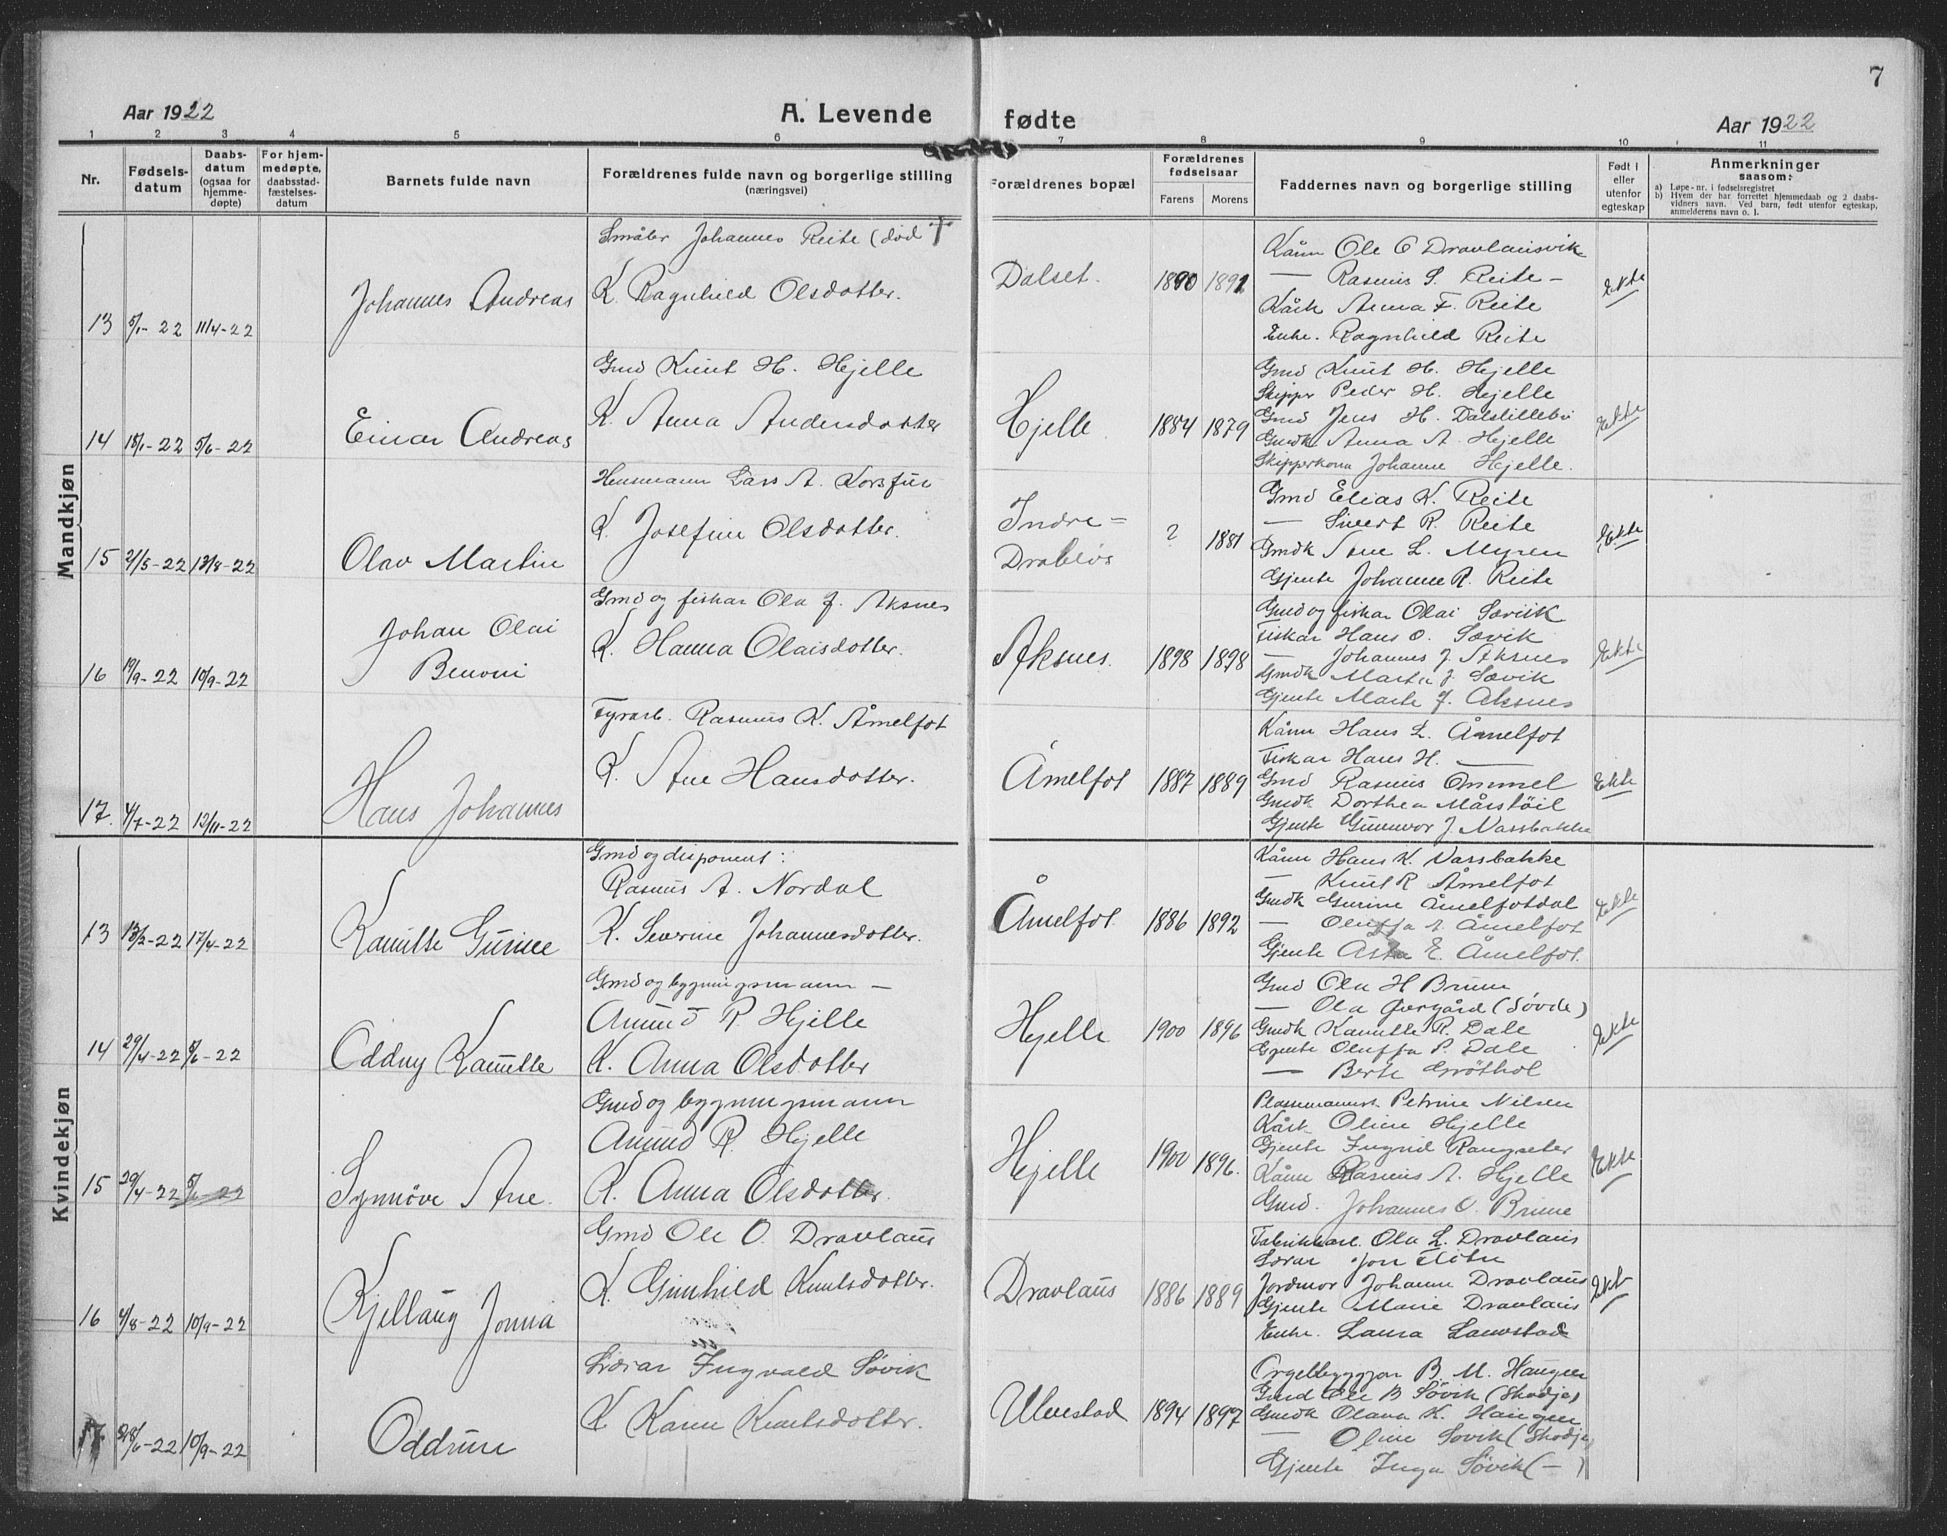 7
Aar 1922
A. Levende
fødte
Aar 1922
1 2 3 4 5 6 7 8 9 10 11
Nr.
Fødsels-
datum
Daabs-
datum
(ogsaa for
hjemme-
døpte)
For hjem-
medøpte,
daabsstad-
fæstelses-
datum
Barnets fulde navn
Forældrenes fulde navn og borgerlige stilling
(næringsvei)
Forældrenes bopæl
Forældrenes
fødselsaar
Farens Morens
Faddernes navn og borgerlig stilling
Født i
eller
utenfor
egteskap
Anmerkninger
saasom:
a) Løpe-nr. i fødselsregistret
b) Hvem der har forrettet hjemmedaab og 2 daabs-
vidners navn. Ved barn, født utenfor egteskap,
anmelderens navn o. l.
Mandkjøn
13 5/1-22 11/4-22
Johannes Andreas
Johannes Reite (død †
K. Ragnhild Olsdotter.
Dalset. 1890 1892
Kårm Ole O Dravlausvik
— Rasmus S. Reite –
Kårk Anna F. Reite
Enke. Ragnhild Reite
Ekte
14 15/1-22 5/6-22
Einar Andreas
Gmd Knut H. Hjelle
K. Anna Andersdotter
Hjelle 1884 1879
Gmd Knut H. Hjelle
Skipper Peder H. Hjelle
Gmd Jens H. Dalstillebø
Gmdk Anna A. Hjelle
Skipperkona Johanne Hjelle.
Ekte
15 21/5-22 13/8-22
Olav Martin
Lars A. Korsfur
K. Josefine Olsdotter.
Indre-
Drabløs
? 1881
Gmd Elias K. Reite
— Sivert R. Reite
Gmdk Ane L. Myren
Gjente Johanne R. Reite
Ekte
16 19/9-22 10/9-22
Johan Olai
Benoni
Gmd og fiskar Ola J. Aksnes
K. Hanna Olaisdotter.
Aksnes. 1898 1898
Gmd og fiskar Olai Sævik
Fiskar Hans O. Sævik
— Johannes J. Aksnes
Gmdk Marta J. Sævik
Gjente Marte J. Aksnes
Ekte
17. 4/7-22 12/11-22
Hans Johannes
Fyrarb. Rasmus K. Åmelfot
K. Ane Hansdotter.
Åmelfot 1887 1889
Kårm Hans L. Åmelfot
Fiskar Hans H. —
Gmd Rasmus Ommel
Gmdk Dorthea Mårstøil
Gjente Gunnvor J. Nassbakke
Ekte
Kvindekjøn
13 13/2-22 17/4-22
Kamille Gurine
Gmd og disponent:
Rasmus A. Nordal
K. Severine Johannesdotter.
Åmelfot. 1886 1892
Kårm Hans K. Vassbakke
— Knut R Åmelfot
Gmdk Gurine Åmelfotdal
— Oluffa A. Åmelfot
Gjente Asta E. Åmelfot.
Ekte
14 29/4-22 5/6-22
Oddny Kamille
Gmd og bygningsmann –
Amund R. Hjelle
K. Anna Olsdotter
Hjelle 1900 1896
Gmd Ola H Brune
— Ola (Søvde)
Gmdk Kamille R. Dale
Gjente Oluffa P. Dale
— Berte Grøthol
Ekte
15 29/4-22 5/6-22
Synnøve Ane
Gmd og bygningsmann
Amund R. Hjelle
K. Anna Olsdotter.
Hjelle 1900 1896.
Petrine Nilsen
Kårk Oline Hjelle
Gjente Ingrid Rangseter
Kårm Rasmus A. Hjelle
Gmd. Johannes O. Brune
Ekte
16 4/8-22 10/9-22
Kjellaug Jonna
Gmd Ole O. Dravlaus
K. Gunhild Knutsdotter.
Dravlaus 1886 1889
Fabrikkarb. Ola L. Dravlaus
Lærar Jon Fløtre
Jordmor Johanne Dravlaus
Gjente Marie Dravlaus
Enke. Laura Lauvstad
Ekte
17 28/6-22 10/9-22
Oddrun
Lærar Ingvald Søvik
K Karen Knutsdotter.
Ulvestad 1894 1897
Orgelbyggjar B. M. Haugen
Gmd Ole B Søvik (Skodje)
Gmdk Olava K. Haugen
— Oline Søvik (Skodje)
Gjente Inga Søvik (–)